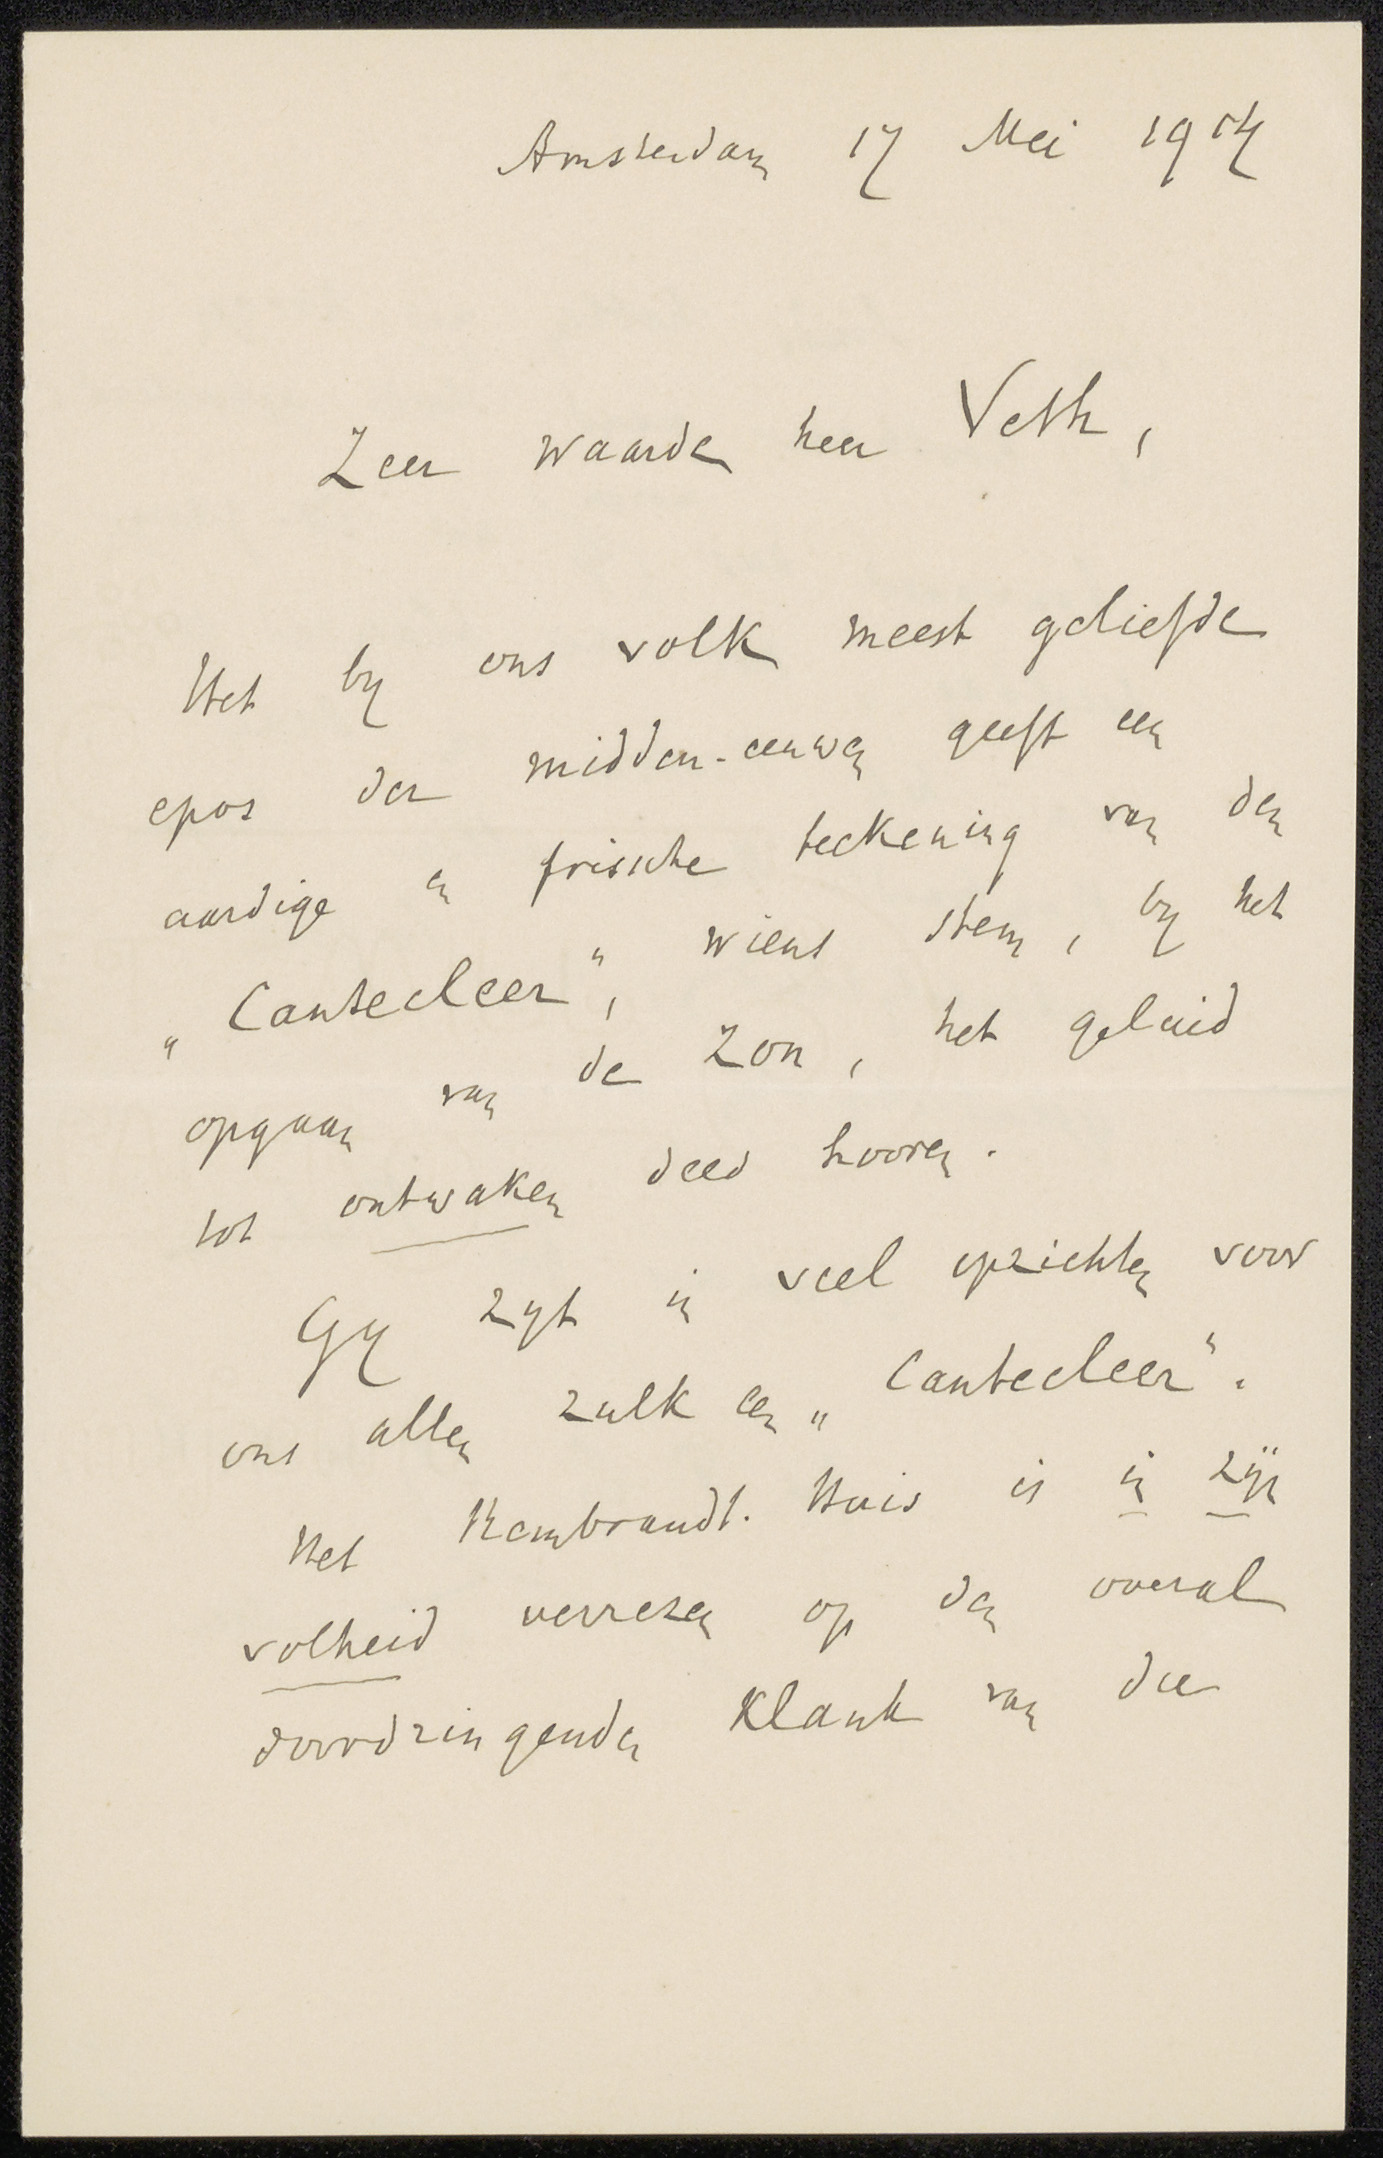 Amsterdam 17 Mei 1914
Zeer waarde heer Veth,
Het by ons volk meest geliefde
epos der midden-eeuwen geeft een
aardige en frissche teekening van den
„Cantecleer", wiens stem, by het
opgaan van de zon, het geluid
tot ontwaken deed hooren.
Gy zyt in veel opzichten voor
ons allen zulk een „Cantecleer".
Het Rembrandt-Huis is in zijn
volheid verrezen op den overal
doordringenden klank van die